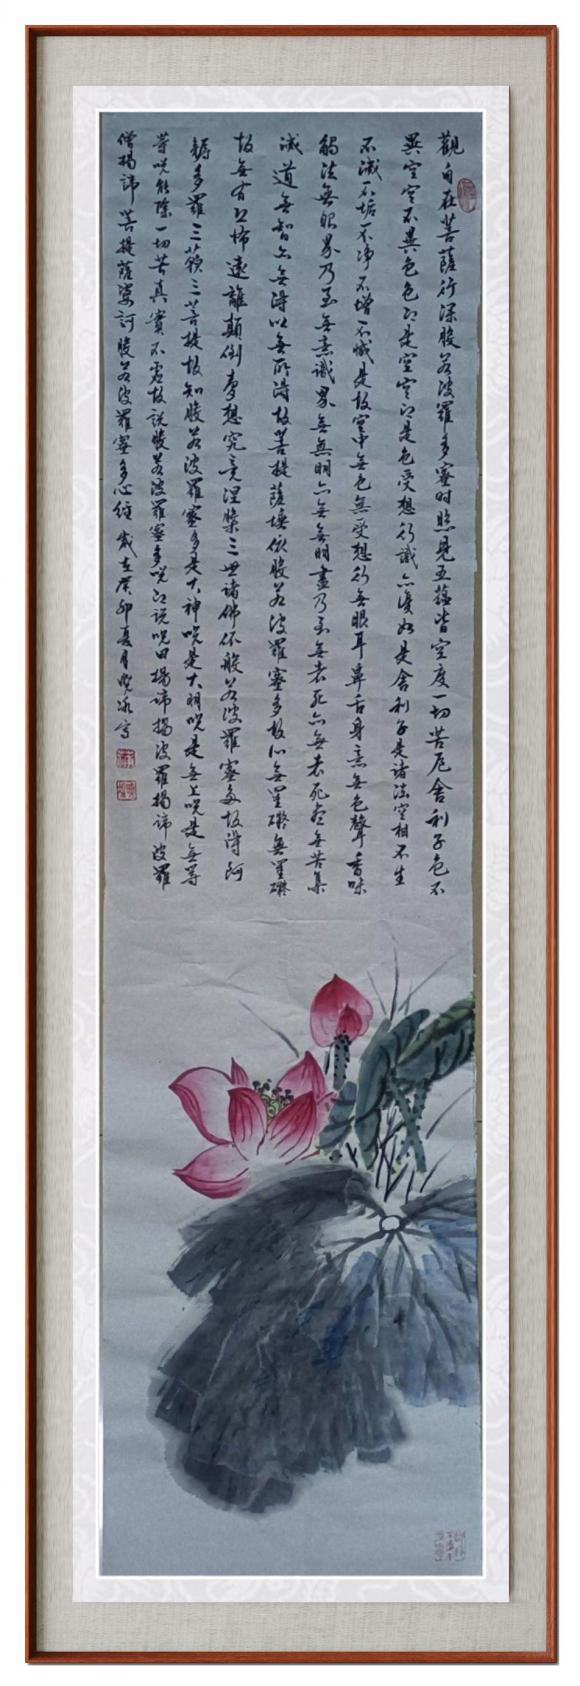 觀自在菩薩行深般若波羅多蜜時照見五蘊皆空度一切苦厄舍利子色不
異空空不異色色即是空空即是色受想行識亦復如是舍利子是諸法空相不生
不滅不垢不净不增不减是故空中無色無受想行無眼耳鼻舌身意無色聲香味
觸法無眼界乃至無意識界無無明亦無無明盡乃至無老死亦無老死盡無苦集
滅道無智亦無得以無所得故菩提薩埵依般若波羅蜜多故心無罣礙無罣礙
故無有恐怖遠離顛倒夢想究竟涅槃三世諸佛依般若波羅蜜多故得阿
耨多羅三藐三菩提故知般若波羅蜜多是大神咒是大明咒是無上咒是無等
等咒能除一切苦真實不虛故説般若波羅蜜多咒即説咒曰揭諦揭諦波羅揭諦波羅
僧揭諦菩提薩婆訶般若波羅蜜多心經 歲在癸卯夏月